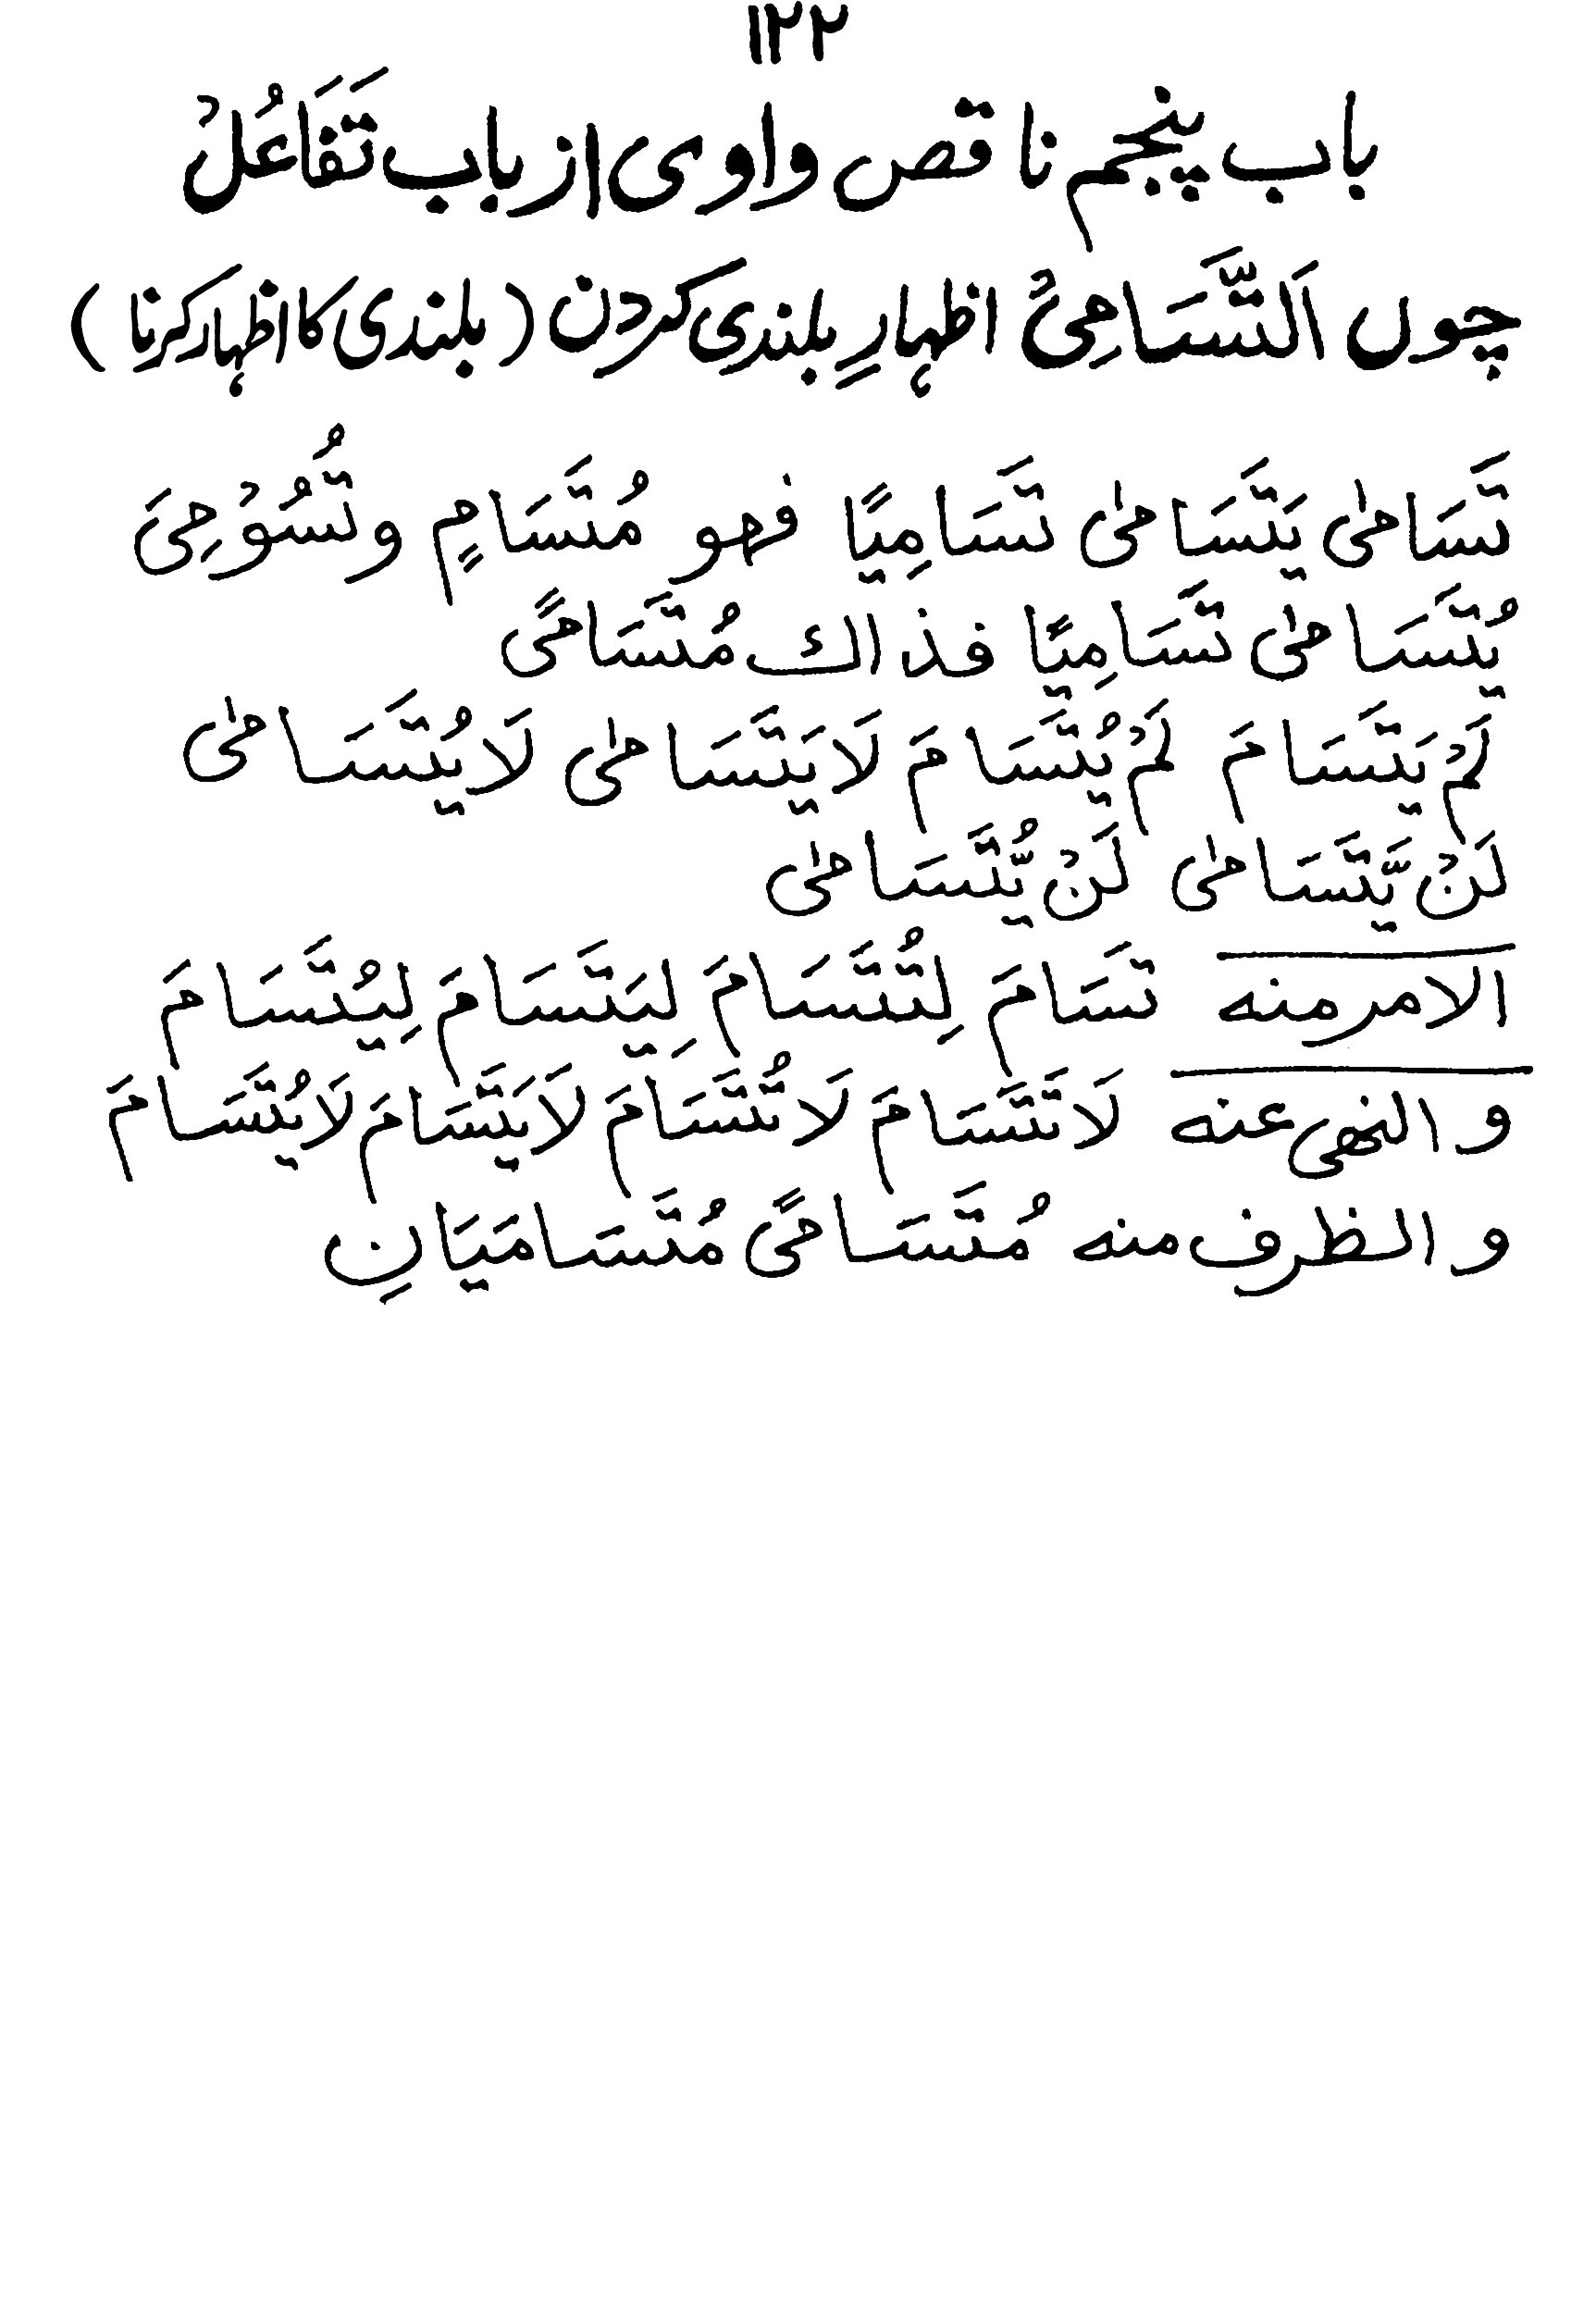 ۱۲۲
باب پنجم ناقص واوی از باب تَفَاعُلْ
چوں اَلتَّسَامِیُ اظہارِ بلندی کردن ( بلندی کا اظہار کرنا )
تَسَامٰی یَتَسَامٰی تَسَامِیًا فهو مُتَسَامٍ وتُسُوْمِیَ
یُتَسَامٰی تَسَامِیًا فذاك مُتَسَامًی
لَمْ یَتَسَامَ لَمْ یُتَسَامَ لَا یَتَسَامٰی لَا یُتَسَامٰی
لَنْ یَّتَسَامٰی لَنْ یُّتَسَامٰی
الامر منه تَسَامَ لِتُتَسَامَ لِیَتَسَامَ لِیُتَسَامَ
و النهی عنه لَا تَتَسَامَ لَا تُتَسَامَ لَا یَتَسَامَ لَا یُتَسَامَ
و الظرف منه مُتَسَامًی مُتَسَامَیَانِ